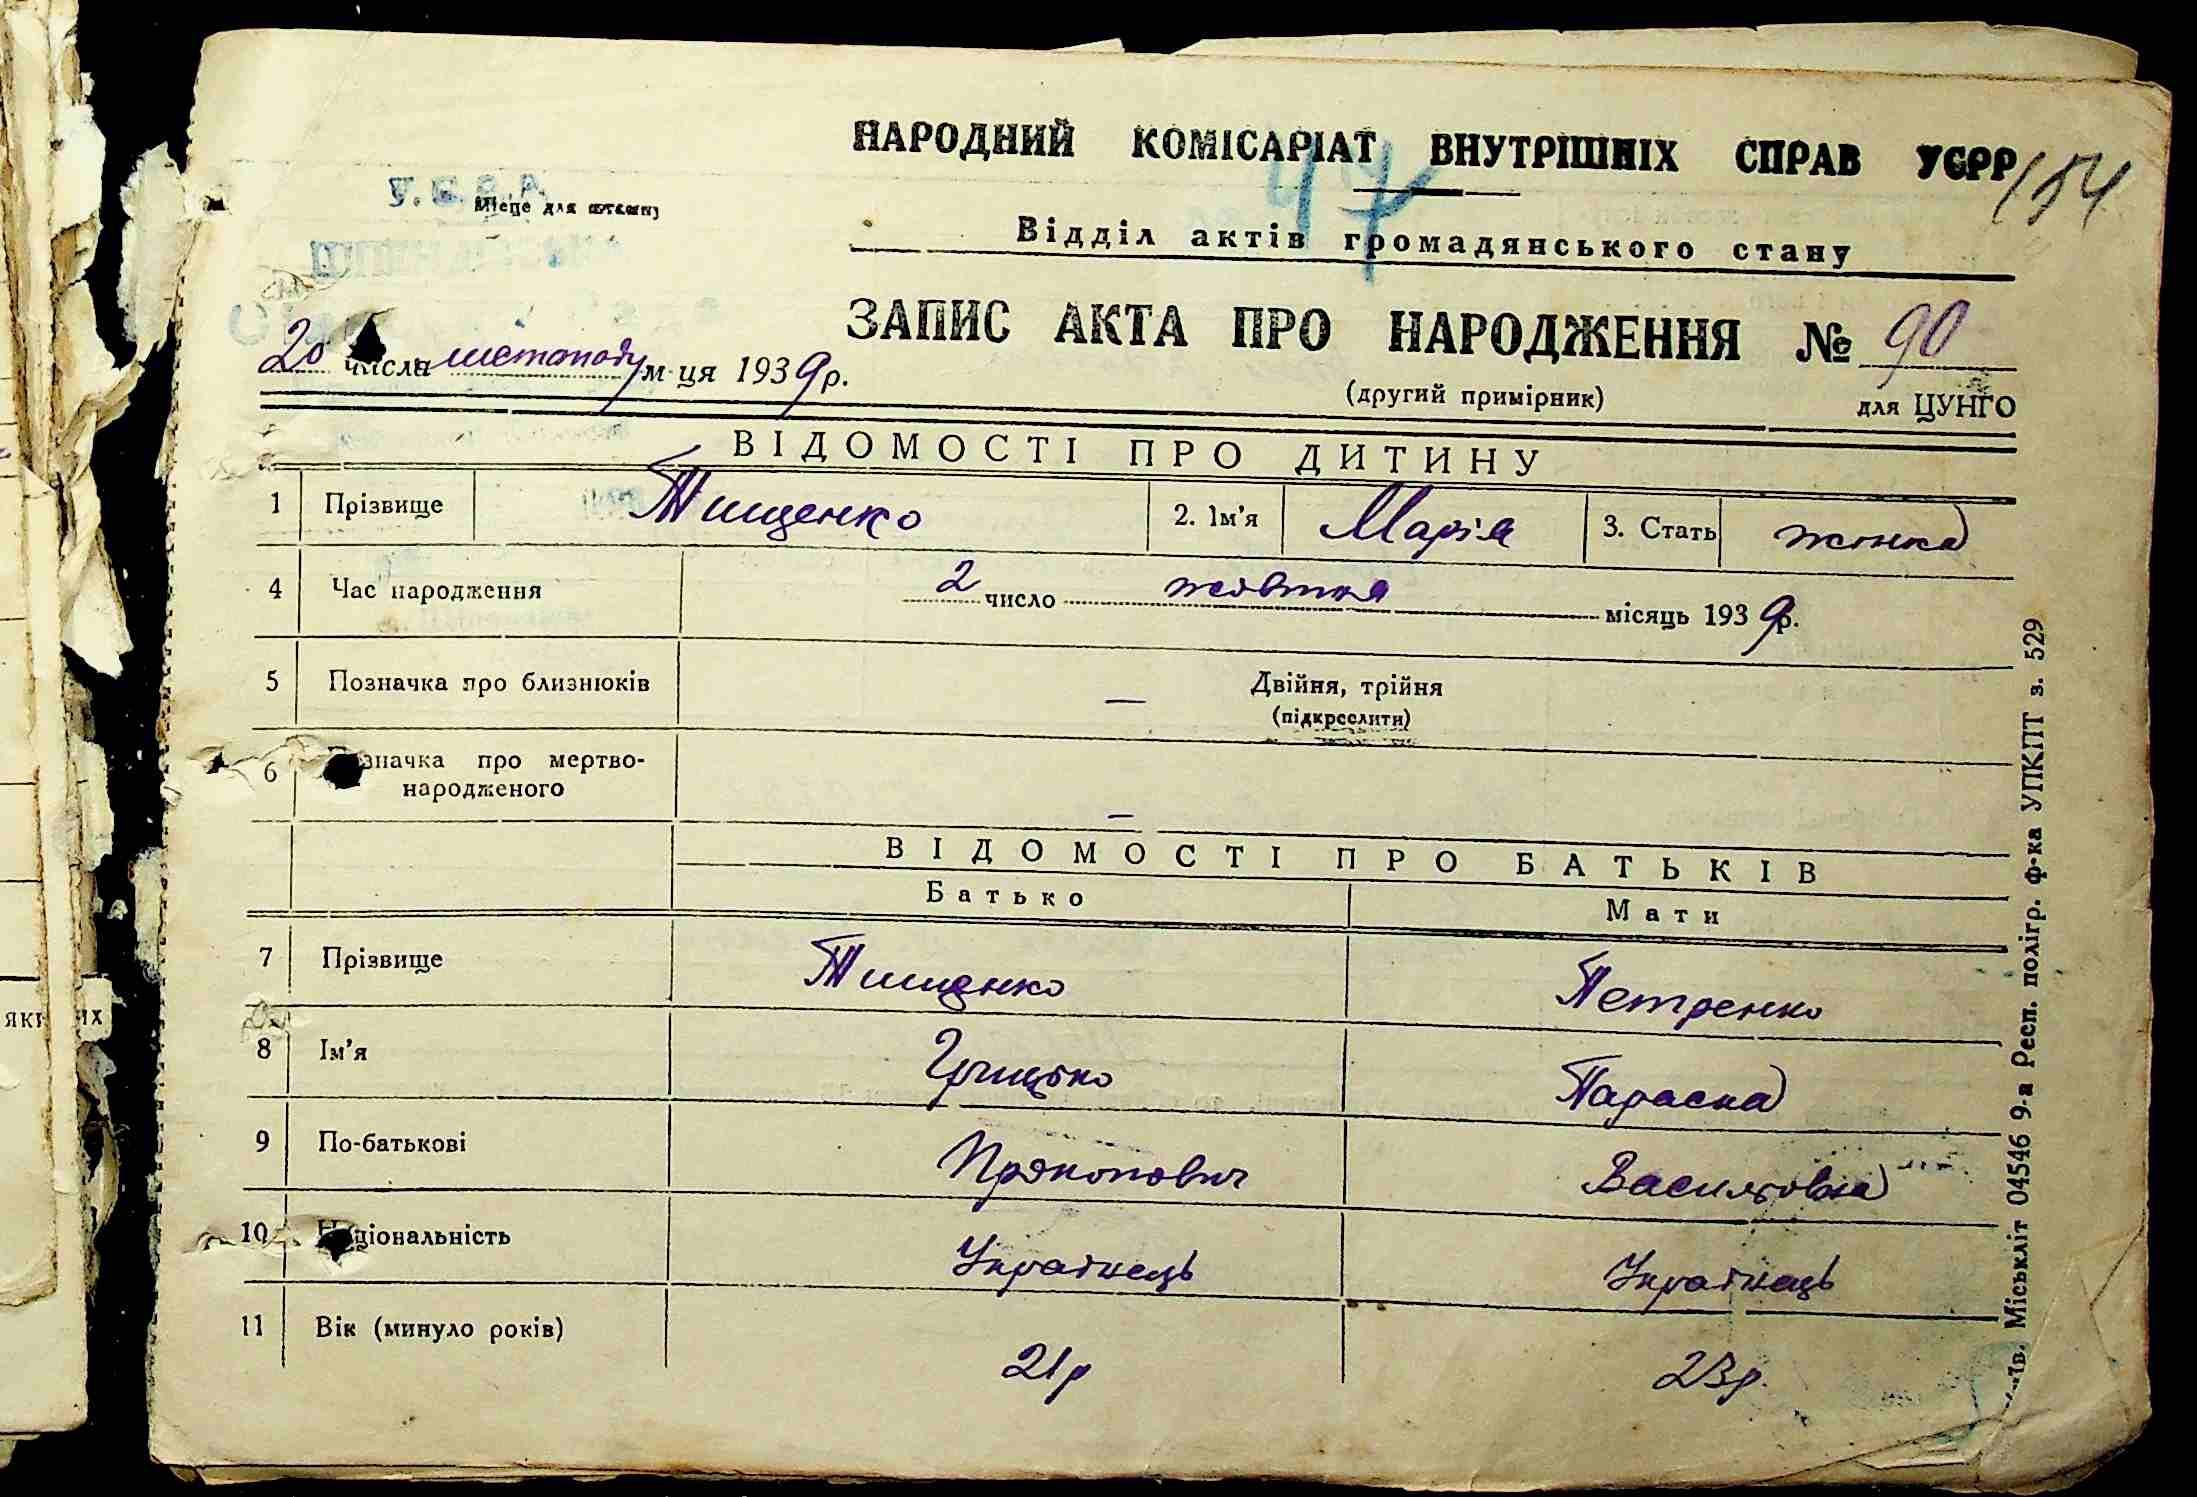 НАРОДНИЙ КОМІСАРІАТ ВНУТРІШНІХ СПРАВ УСРР
154
47
У.С.Р.Р.
Місце для штампу
Відділ актів громадянського стану
ЗАПИС АКТА ПРО НАРОДЖЕННЯ № 90
20 числа листопаду м-ця 1939р.
(другий примірник)
для ЦУНГО
ВІДОМОСТІ ПРО ДИТИНУ
1 Прізвище Тищенко 2. Ім'я Марія 3. Стать жінка
4 Час народження 2 число жовтня місяць 1939р.
5 Позначка про близнюків — Двійня, трійня
(підкреслити)
6 значка про мертво-
народженого —
ВІДОМОСТІ ПРО БАТЬКІВ
Батько Мати
7 Прізвище Тищенко Петренко
8 Ім'я Грицько Параска
9 По-батькові Прокопович Василівна
10 Національність Українець Українець
11 Вік (минуло років) 21р 23р.
Міськліт 04546 9-а Респ. полігр. ф-ка УПКПТ з. 529